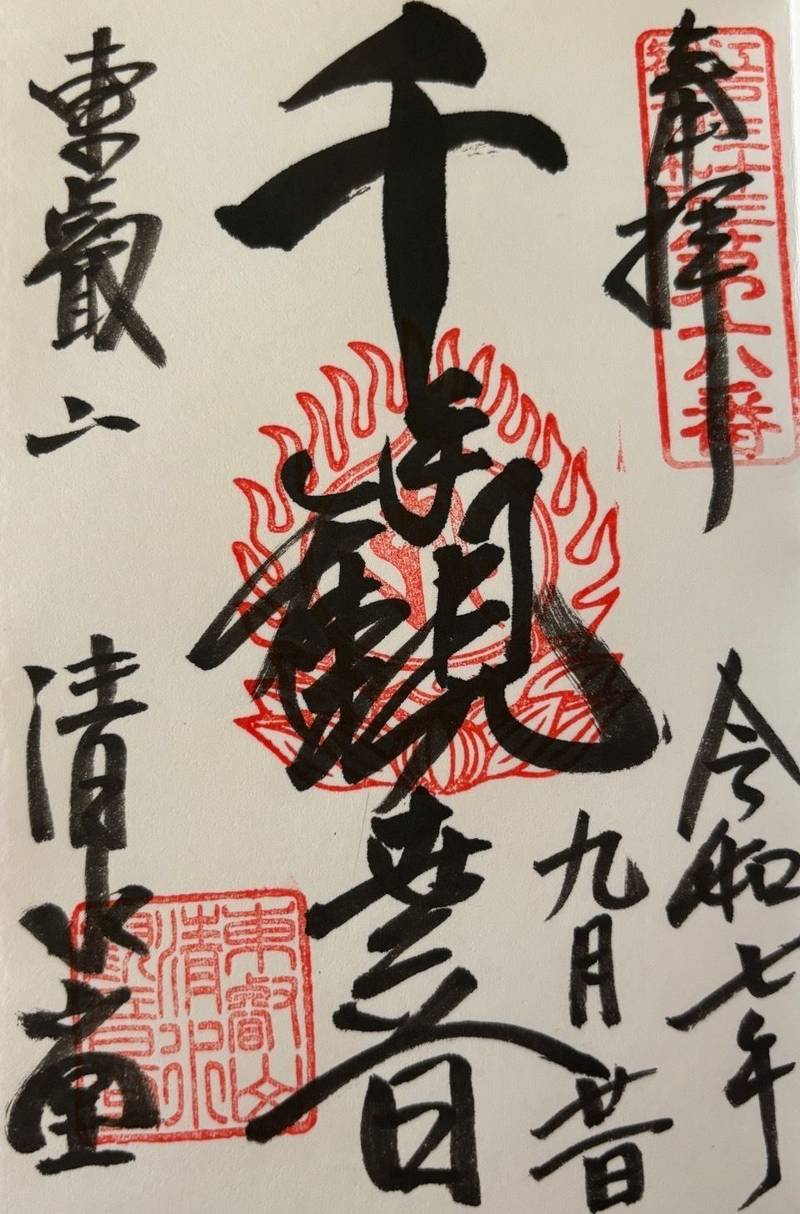 奉拝
江戸三十三
第六番
令和七年
九月
千手觀世音
東叡山 清水堂
東叡山
清水
観音堂